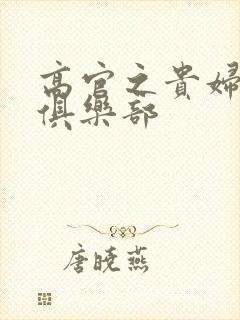 高官之貴婦
俱樂部
唐曉燕